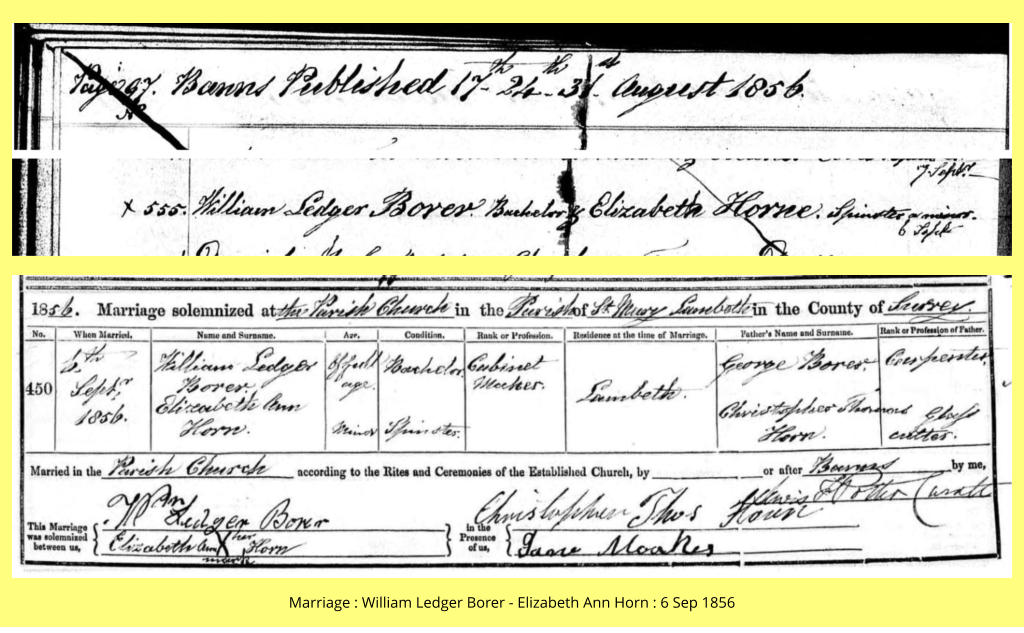 Page 97. Banns Published 17th 24th 31st August 1856.
7 Septr
x 555. William Ledger Borer. Bachelor & Elizabeth Horne. Spinster a minor.
6 Septr
1856. Marriage solemnized at the Parish Church in the Parish of St. Mary Lambeth in the County of Surrey.
No. When Married. Name and Surname. Age. Condition. Rank or Profession. Residence at the time of Marriage. Father's Name and Surname. Rank or Profession of Father.
450 6th Septr 1856. William Ledger Borer. Of full age. Bachelor Cabinet Maker. Lambeth. George Borer. Carpenter.
Elizabeth Ann Horn. Minor Spinster. Christopher Thomas Horn. Glass cutter.
Married in the Parish Church according to the Rites and Ceremonies of the Established Church, by or after Banns by me,
Potter Curate
This Marriage was solemnized between us, Wm Ledger Borer
Elizabeth Ann X Horn
her mark
in the Presence of us, Christopher Thos Horn
Jane Moakes
Marriage : William Ledger Borer - Elizabeth Ann Horn : 6 Sep 1856